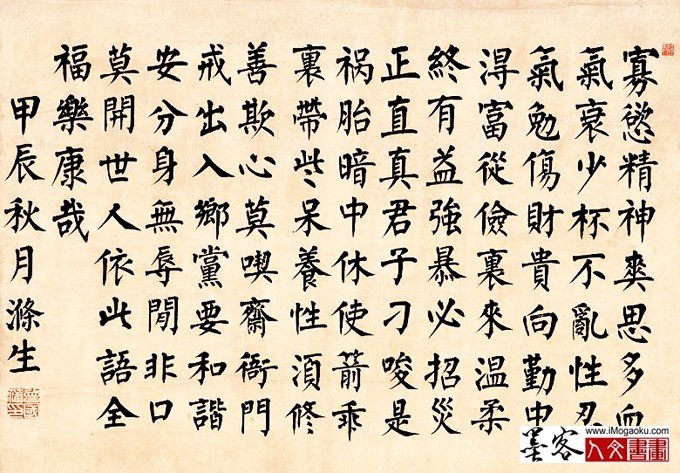 寡慾精神爽思多血
氣衰少杯不亂性忍
氣勉傷財貴向勤中
淂富從儉裏來温柔
終有益強暴必招災
正直真君子刁唆是
祸胎暗中休使箭乖
裏帶些呆養性湏修
善欺心莫喫齋衙門
戒出入鄉黨要和諧
安分身無辱閒非口
莫開世人依此語全
福樂康哉
甲辰秋月滌生
www.iMogaoku.com
墨客 人文書畫